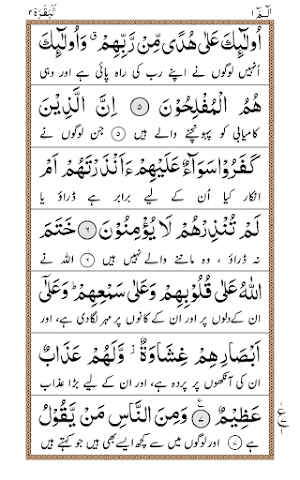 الٓمّٓ ١ البقرة ٢
اُولٰٓئِكَ عَلٰى هُدًى مِّنْ رَّبِّهِمْ ۗ وَاُولٰٓئِكَ
انہیں لوگوں نے اپنے رب کی راہ پائی ہے اور وہی
هُمُ الْمُفْلِحُوْنَ ۝٥ اِنَّ الَّذِيْنَ
کامیابی کو پہونچنے والے ہیں ۝٥ جن لوگوں نے
كَفَرُوْا سَوَآءٌ عَلَيْهِمْ ءَاَنْذَرْتَهُمْ اَمْ
انکار کیا اُن کے لیے برابر ہے ڈراؤ یا
لَمْ تُنْذِرْهُمْ لَا يُؤْمِنُوْنَ ۝٦ خَتَمَ
نہ ڈراؤ ، وہ ماننے والے نہیں ہیں ۝٦ اللہ نے
اللّٰهُ عَلٰى قُلُوْبِهِمْ وَعَلٰى سَمْعِهِمْ ؕ وَعَلٰٓى
ان کے دلوں پر اور ان کے کانوں پر مہر لگا دی ہے، اور
اَبْصَارِهِمْ غِشَاوَةٌ ؗ وَّلَهُمْ عَذَابٌ
ان کی آنکھوں پر پردہ ہے، اور ان کے لیے بڑا عذاب
عَظِيْمٌ ۝٧ وَمِنَ النَّاسِ مَنْ يَّقُوْلُ
ہے ۝٧ اور لوگوں میں سے کچھ ایسے بھی ہیں جو کہتے ہیں